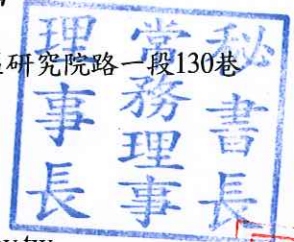 研究院路一段130巷
理事長
常務理事
秘書長